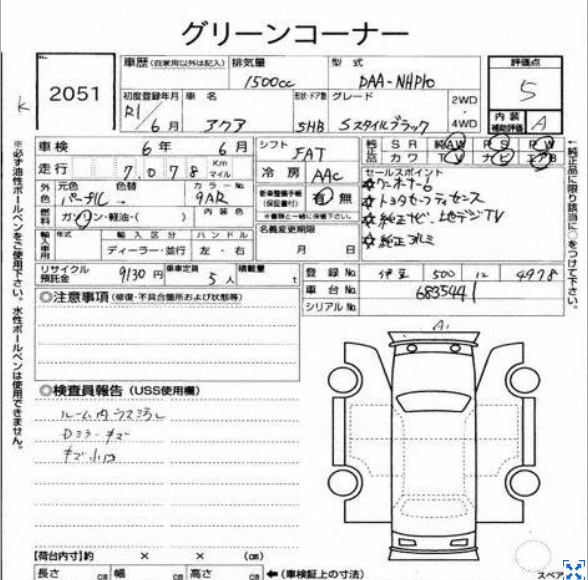 グリーンコーナー
2051
K
車歴 (自家用以外は記入) 排気量 型式
1500cc DAA-NHP10
初度登録年月 車名 形状・ドア数 グレード 2WD
R1/6月 アクア 5HB Sスタイルブラック 4WD
評価点
5
内装補助評価 A
車検 6年 6月
走行 7.078 Km マイル
外色 元色 色替 カラーNo.
パープル→ 9AR
燃料 ガソリン・軽油・( ) 内装色
輸入車用 年式 輸入区分 ハンドル
ディーラー・並行 左・右
シフト FAT
冷房 AAC
新車整備手帳(保証書付) 有 無
※書類と一緒に保管下さい。
名義変更期限
月 日
純正品 SR 純AW PS PW
カワ TV ナビ エアB
セールスポイント
☆ワンオーナー
☆トヨタセーフティセンス
☆純正ナビ、地デジTV
☆純正アルミ
リサイクル預託金 9130円 乗車定員 5人 積載量 t
登録No. 伊豆 500 4978
車台No. 6835441
シリアルNo.
◎注意事項 (修復・不具合箇所および状態等)
◎検査員報告 (USS使用欄)
ルーム内ウスヨゴレ
Dミラーキズ
キズ小凹
A1
【荷台内寸】約 × × (cm)
長さ cm 幅 cm 高さ cm ←(車検証上の寸法)
スペア
※必ず油性ボールペンをご使用下さい。水性ボールペンは使用できません。
↑純正品に限り該当に○をつけて下さい。